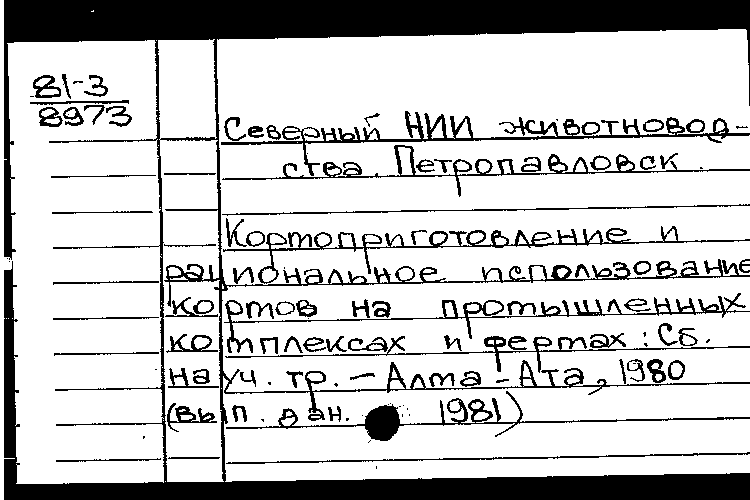 81-3
8973
Северный НИИ животновод-
ства. Петропавловск.
Кормоприготовление и
рациональное использование
кормов на промышленных
комплексах и фермах : Сб.
науч. тр. — Алма-Ата, 1980
(вып. дан. 1981)